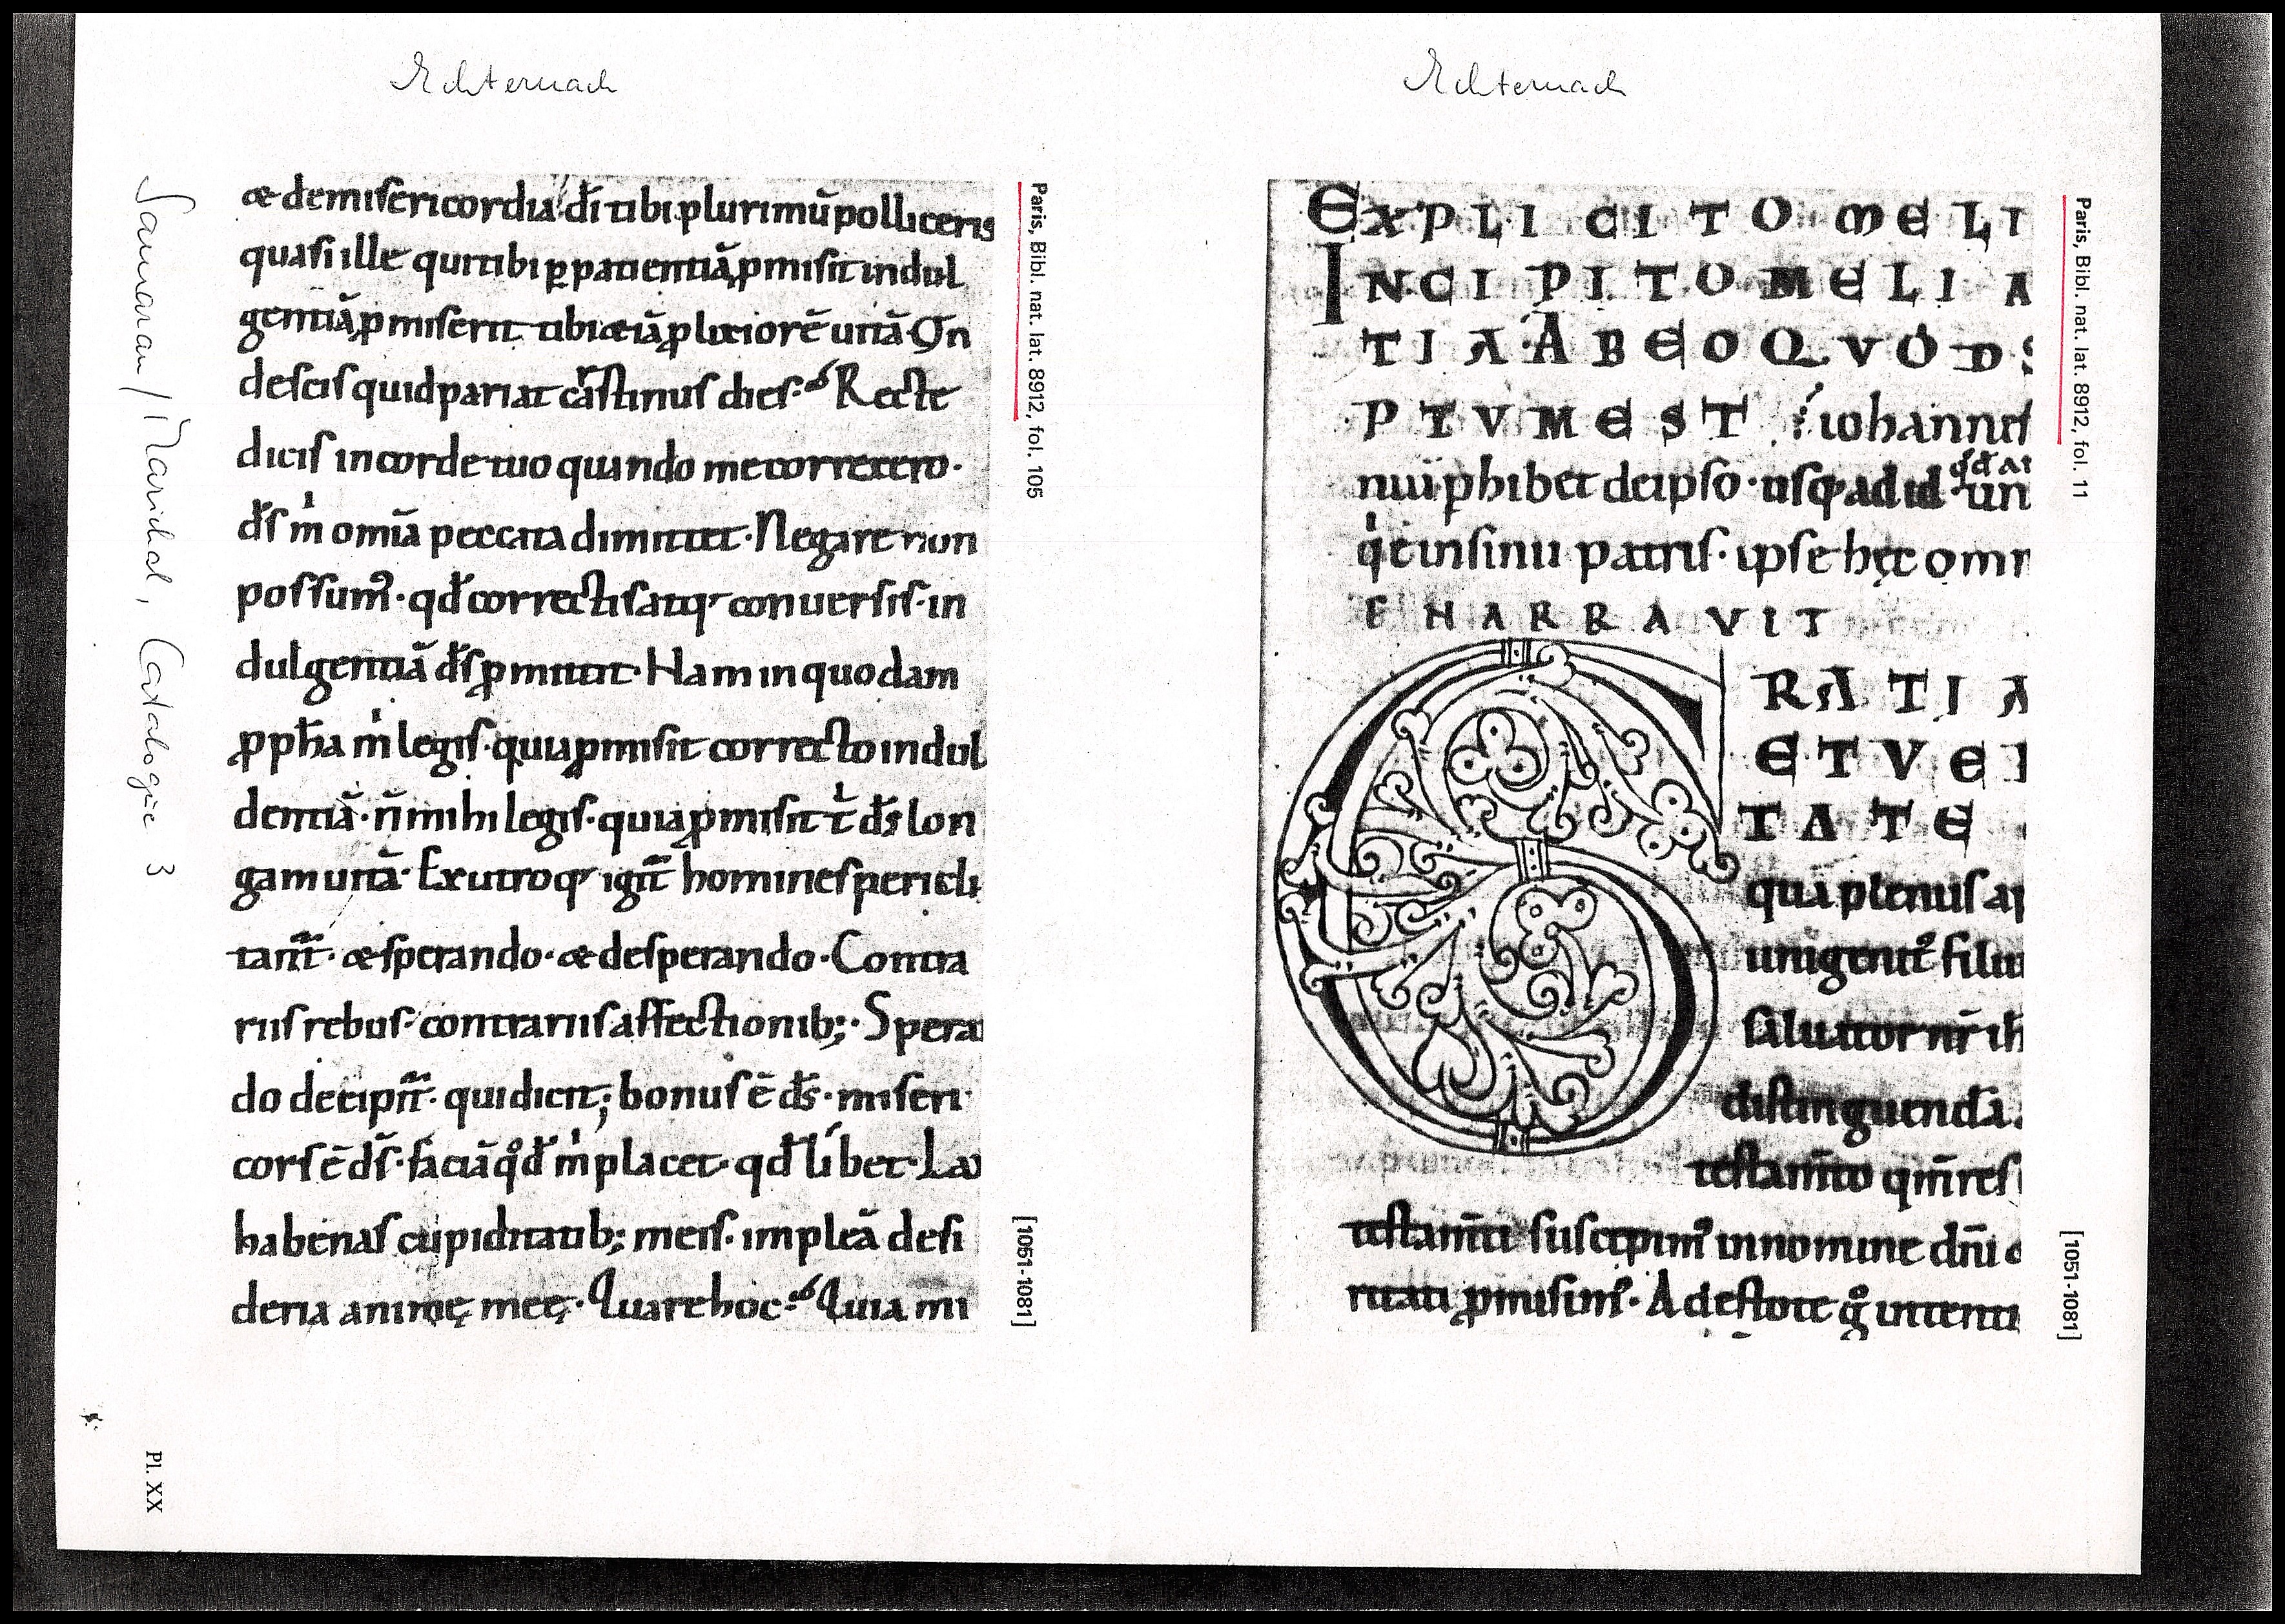 Echternach
Samaran / Marichal, Catalogue 3
æ demisericordia dı̄ tibi plurimū polliceris
quasi ille qui tibi ꝑ patientiā ꝓmisit indul
gentiā ꝓmiserit tibi æiā ꝓlixiorē uitā On
descis quid pariat crastinus dies· Recte
dicis incorde tuo quando me correxero·
ds̄ m omīa peccata dimittet· Negare non
possum᾽· qd̄ correctis atq; conuersis· in
dulgentiā ds̄ ꝓmittit· Nam in quodam
ꝓpħa m legis· quia ꝓmisit correcto indul
dentiā· n̄ mihi legis· quia ꝓmisit t ds̄ lon
gam uitā· Ex utroq; igit̄ homines pericli
tant̄· æ sperando· æ desperando· Contra
riis rebus· contrariis affectionib;· Spera
do decipit̄· qui dicit; bonus ē ds̄· miseri
cors ē ds̄· faciā qd̄ m placet· qd̄ libet· Lax
habenas cupiditatib; meis· impleā desi
deria animę meę· Quare hoc· Quia mi
Paris, Bibl. nat. lat. 8912, fol. 105
[1051-1081]
Pl. XX
Echternach
EXPLICIT OMELI
INCIPIT OMELIA
TIA· A B EO QVOD S
PTVM EST iohannes
nui ꝓhibet deipso· usq; ad id un
q̇ ē insinu patris· ipse hęc omn
ENARRAVIT
GRATIA
ET VE
TATE
qua plenus ap
unigenit᾽ filiu
saluator nr̄ ih
distinguendā
testam̄to qm̄ res
testam̄ti suscepim᾽ innomine dn̄i
ritati ꝓmisim᾽· Adestote g̊ intenti
Paris, Bibl. nat. lat. 8912, fol. 11
[1051-1081]